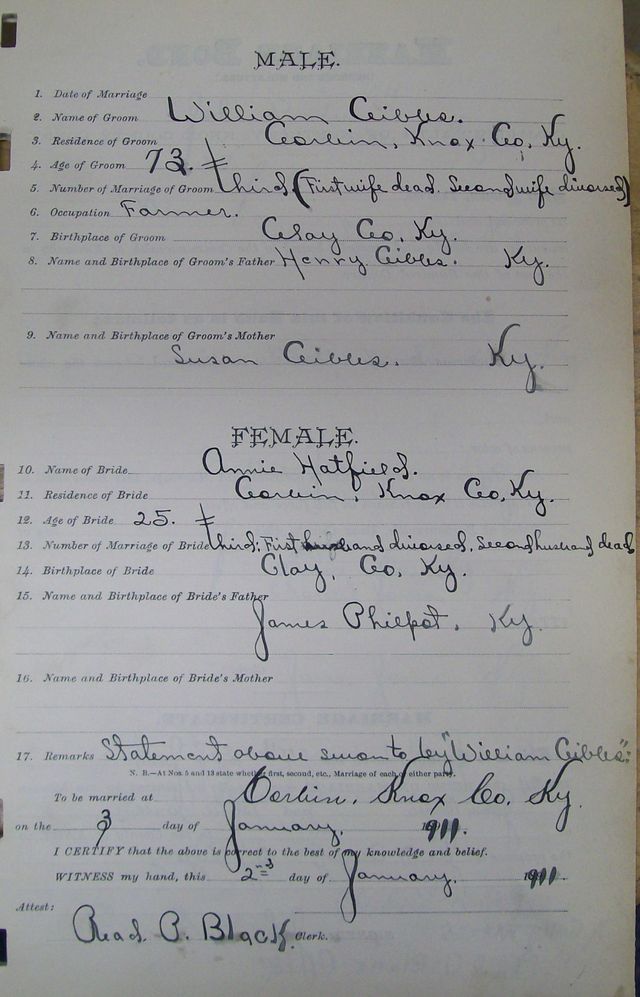 MALE.
1. Date of Marriage
2. Name of Groom William Gibbs.
3. Residence of Groom Corbin, Knox Co, Ky.
4. Age of Groom 73.
5. Number of Marriage of Groom third (First wife dead. Second wife divorsed)
6. Occupation Farmer.
7. Birthplace of Groom Clay Co, Ky.
8. Name and Birthplace of Groom's Father Henry Gibbs. Ky.
9. Name and Birthplace of Groom's Mother
Susan Gibbs. Ky.
FEMALE.
10. Name of Bride Annie Hatfield.
11. Residence of Bride Corbin, Knox Co, Ky.
12. Age of Bride 25.
13. Number of Marriage of Bride third; First husband divorsed, Second husband dead
14. Birthplace of Bride Clay, Co, Ky.
15. Name and Birthplace of Bride's Father
James Philpot, Ky.
16. Name and Birthplace of Bride's Mother
17. Remarks Statement above sworn to by "William Gibbs":
N. B.—At Nos. 5 and 13 state whether first, second, etc., Marriage of each or either party.
To be married at Corbin, Knox Co, Ky
on the 3 day of January, 1911.
I CERTIFY that the above is correct to the best of my knowledge and belief.
WITNESS my hand, this 2nd day of January. 1911
Attest:
Read P. Black Clerk.